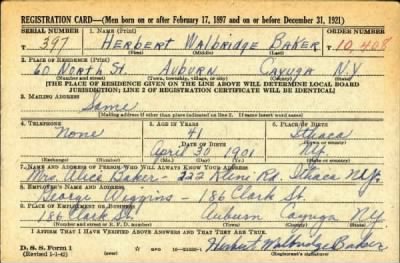 REGISTRATION CARD—(Men born on or after February 17, 1897 and on or before December 31, 1921)
SERIAL NUMBER 1. NAME (Print) ORDER NUMBER
T 397 HERBERT WALBRIDGE BAKER T 10,408
(First) (Middle) (Last)
2. PLACE OF RESIDENCE (Print)
60 North St. Auburn Cayuga N.Y.
(Number and street) (Town, township, village, or city) (County) (State)
[THE PLACE OF RESIDENCE GIVEN ON THE LINE ABOVE WILL DETERMINE LOCAL BOARD
JURISDICTION; LINE 2 OF REGISTRATION CERTIFICATE WILL BE IDENTICAL]
3. MAILING ADDRESS
Same
[Mailing address if other than place indicated on line 2. If same insert word same]
4. TELEPHONE 5. AGE IN YEARS 6. PLACE OF BIRTH
None 41 Ithaca
DATE OF BIRTH (Town or county)
April 30 1901 N.Y.
(Exchange) (Number) (Mo.) (Day) (Yr.) (State or country)
7. NAME AND ADDRESS OF PERSON WHO WILL ALWAYS KNOW YOUR ADDRESS
Mrs. Alice Baker - 222 Rd. Ithaca N.Y.
8. EMPLOYER'S NAME AND ADDRESS
George Wiggins - 186 Clark St.
9. PLACE OF EMPLOYMENT OR BUSINESS
186 Clark St. Auburn Cayuga N.Y.
(Number and street or R. F. D. number) (Town) (County) (State)
I AFFIRM THAT I HAVE VERIFIED ABOVE ANSWERS AND THAT THEY ARE TRUE.
D. S. S. Form 1
(Revised 1-1-42) GPO Herbert Walbridge Baker
(Registrant's signature)